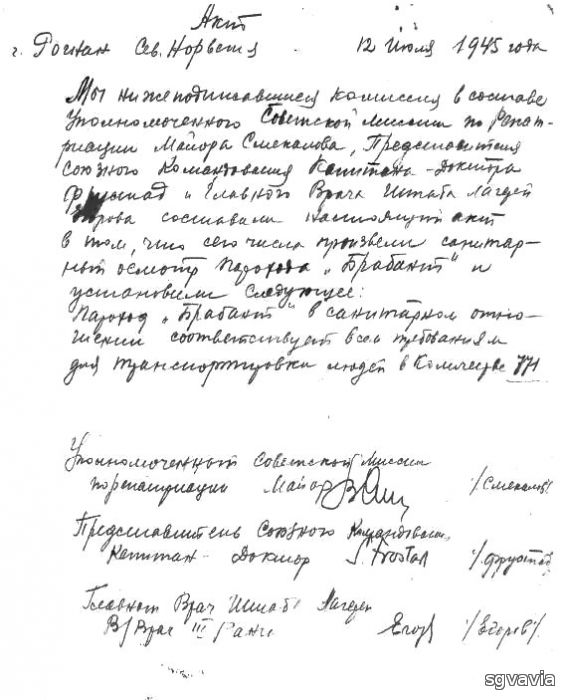 Акт
г. Рогнан Сев. Норвегия 12 Июля 1945 года
Мы нижеподписавшиеся комиссия в составе
Уполномоченного Советской Миссии по репат-
риации Майора Смекалова, Представителя
Союзного Командования Капитана-Доктора
Фрустад и Главного Врача Штаба Лагерей
Егорова составили настоящий акт
в том, что сего числа произвели санитар-
ный осмотр парохода „Брабант“ и
установили следующее:
Пароход „Брабант“ в санитарном отно-
шении соответствует всем требованиям
для транспортировки людей в количестве 771
Уполномоченный Советской Миссии
по репатриации Майор /Смекалов/
Представитель Союзного Командования
Капитан-Доктор S. Frostad /Фрустад
Главный Врач Штаба Лагерей
В/Врач III Ранга Егор /Егоров/.
sgvavia